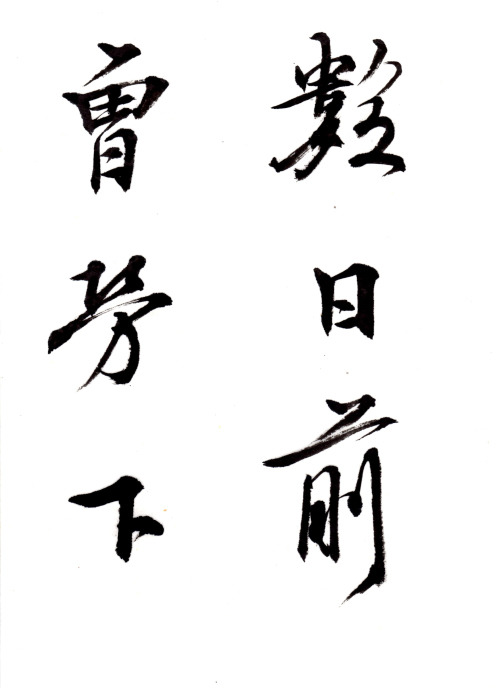 數日前
曾勞下